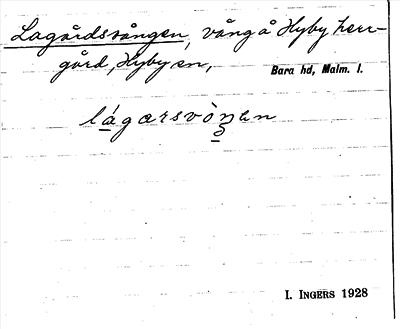 Lagårdsvången, vång å Hyby herr-
gård, Hyby sn,
Bara hd, Malm. l.
lágarsvòŋen
I. INGERS 1928